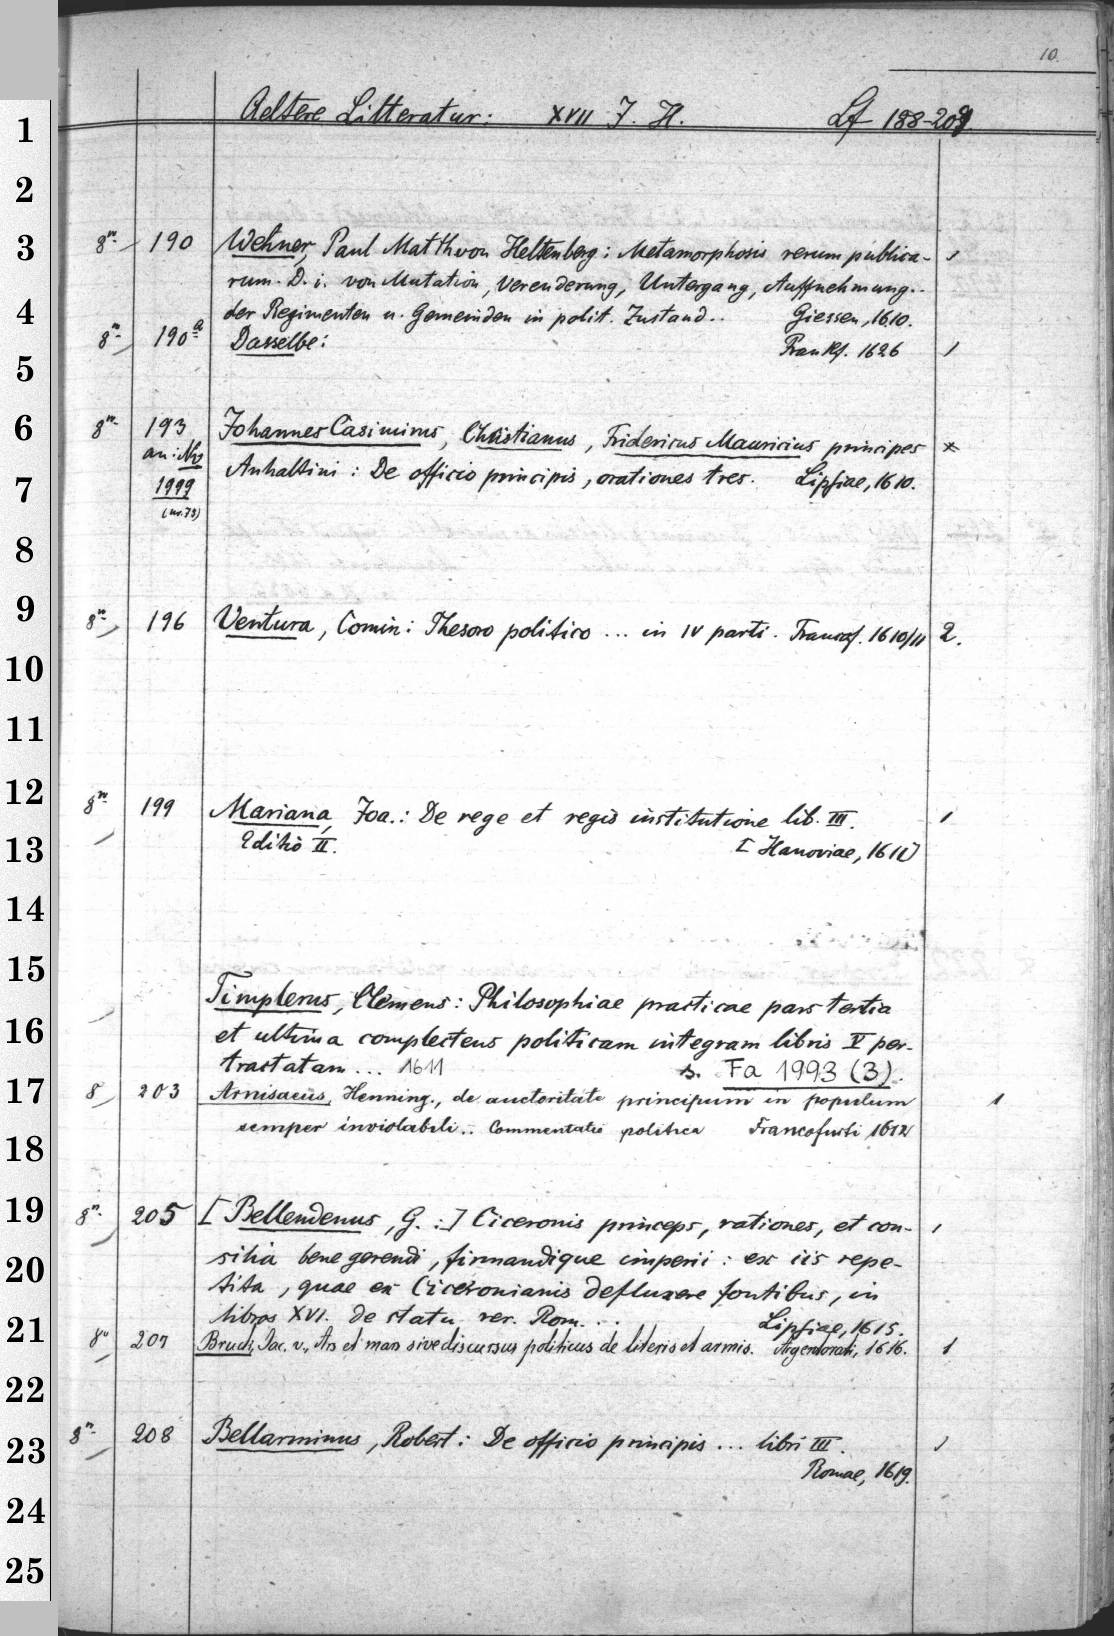 10.
1 Aeltere Litteratur: XVII J. H. Lf 188-209.
2
3 8n. 190 Wehner, Paul Matth von Heltenberg: Metamorphosis rerum publica- 1
rum. D. i. von Mutation, Verenderung, Untergang, Auffnehmung..
4 der Regimenten u. Gemeinden in polit. Zustand.. Giessen, 1610.
8n. 190a Dasselbe: Frankf. 1626 1
5
6 8n. 193 Johannes Casimirus, Christianus, Fridericus Mauricius principes *
an: Ns Anhaltini: De officio principis, orationes tres. Lipsiae, 1610.
7 1999
(nr. 73)
8
9 8n. 196 Ventura, Comin: Thesoro politico ... in IV parti. Francof. 1610/11 2.
10
11
12 8n. 199 Mariana, Joa.: De rege et regis institutione lib. III. 1
13 Editio II. [Hanoviae, 1611]
14
15 Timplerus, Clemens: Philosophiae practicae pars tertia
16 et ultima complectens politicam integram libris V per-
tractatam... 1611 s. Fa 1993 (3).
17 8 203 Arnisaeus, Henning., de auctoritate principum in populum 1
semper inviolabili.. Commentatio politica Francofurti 1612
18
19 8n. 205 [Bellendenus, G. :] Ciceronis princeps, rationes, et con- 1
silia bene gerendi, firmandique imperii: ex iis repe-
20 tita, quae ex Ciceronianis defluxere fontibus, in
libros XVI. de statu rer. Rom... Lipsiae, 1615.
21 8o 207 Bruck, Jac. v., Ars et mars sive discursus politicus de literis et armis. Argentorati, 1616. 1
22
23 8n. 208 Bellarminus, Robert: De officio principis ... libri III. 1
Romae, 1619.
24
25